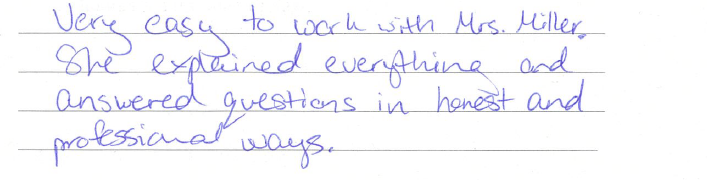 Very easy to work with Mrs. Miller.
She explained everything and
answered questions in honest and
professional ways.